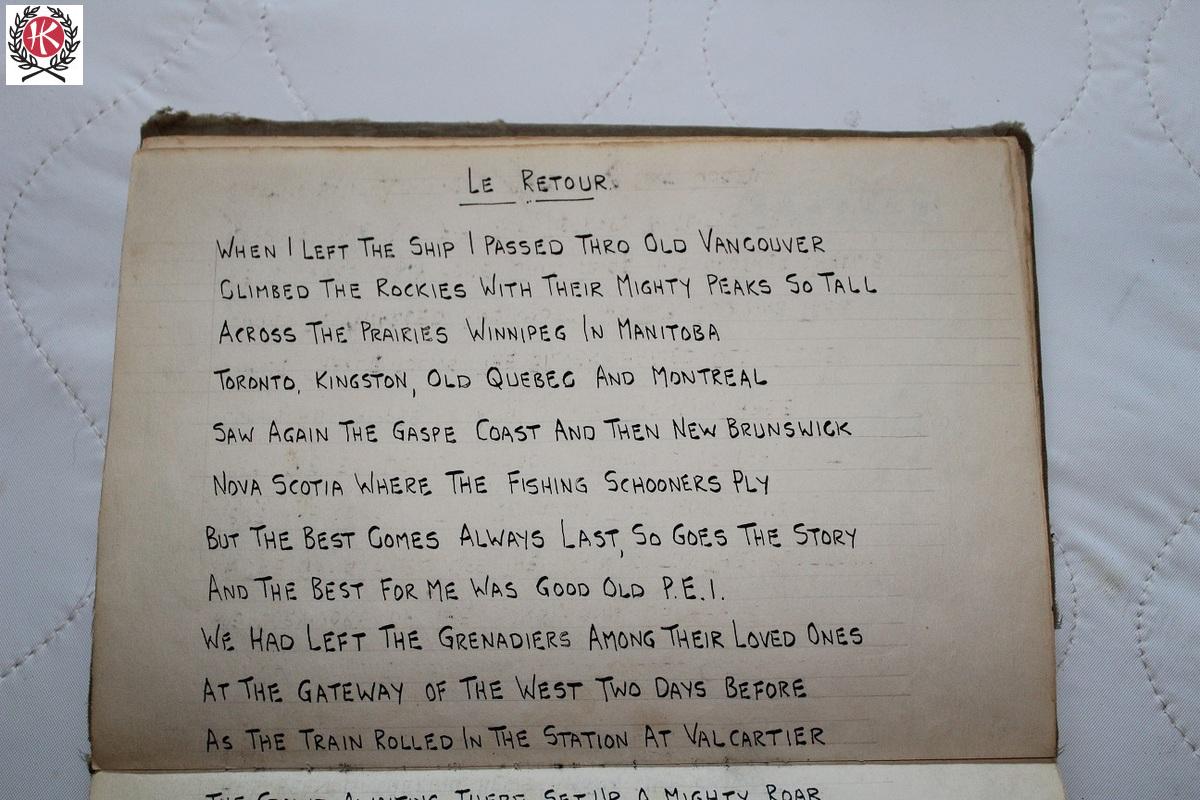 HK
LE RETOUR.
WHEN I LEFT THE SHIP I PASSED THRO OLD VANCOUVER
CLIMBED THE ROCKIES WITH THEIR MIGHTY PEAKS SO TALL
ACROSS THE PRAIRIES WINNIPEG IN MANITOBA
TORONTO, KINGSTON, OLD QUEBEC AND MONTREAL
SAW AGAIN THE GASPE COAST AND THEN NEW BRUNSWICK
NOVA SCOTIA WHERE THE FISHING SCHOONERS PLY
BUT THE BEST COMES ALWAYS LAST, SO GOES THE STORY
AND THE BEST FOR ME WAS GOOD OLD P.E.I.
WE HAD LEFT THE GRENADIERS AMONG THEIR LOVED ONES
AT THE GATEWAY OF THE WEST TWO DAYS BEFORE
AS THE TRAIN ROLLED IN THE STATION AT VALCARTIER
THE CROWD AWAITING THERE SET UP A MIGHTY ROAR